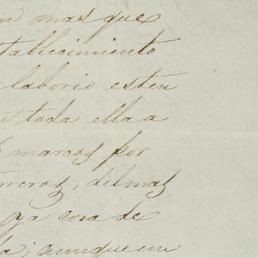 mas que
tablecimiento
laborio esten
toda ella a
marcos por
rreros, del mas
ya cosa de
la; aunque un